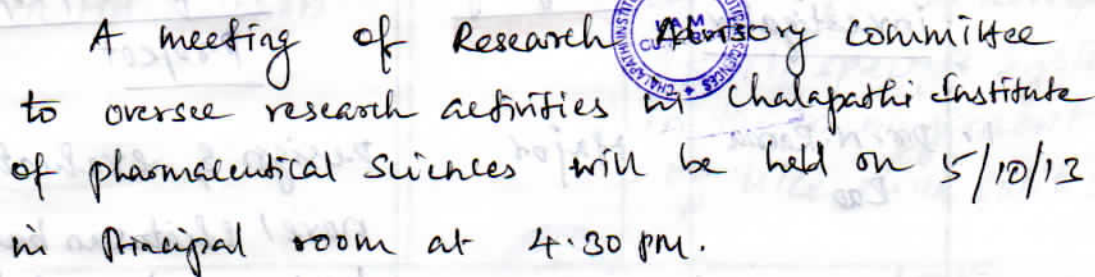 A meeting of Research Advisory Committee
to oversee research activities in Chalapathi Institute
of pharmaceutical Sciences will be held on 5/10/13
in Principal room at 4.30 pm.